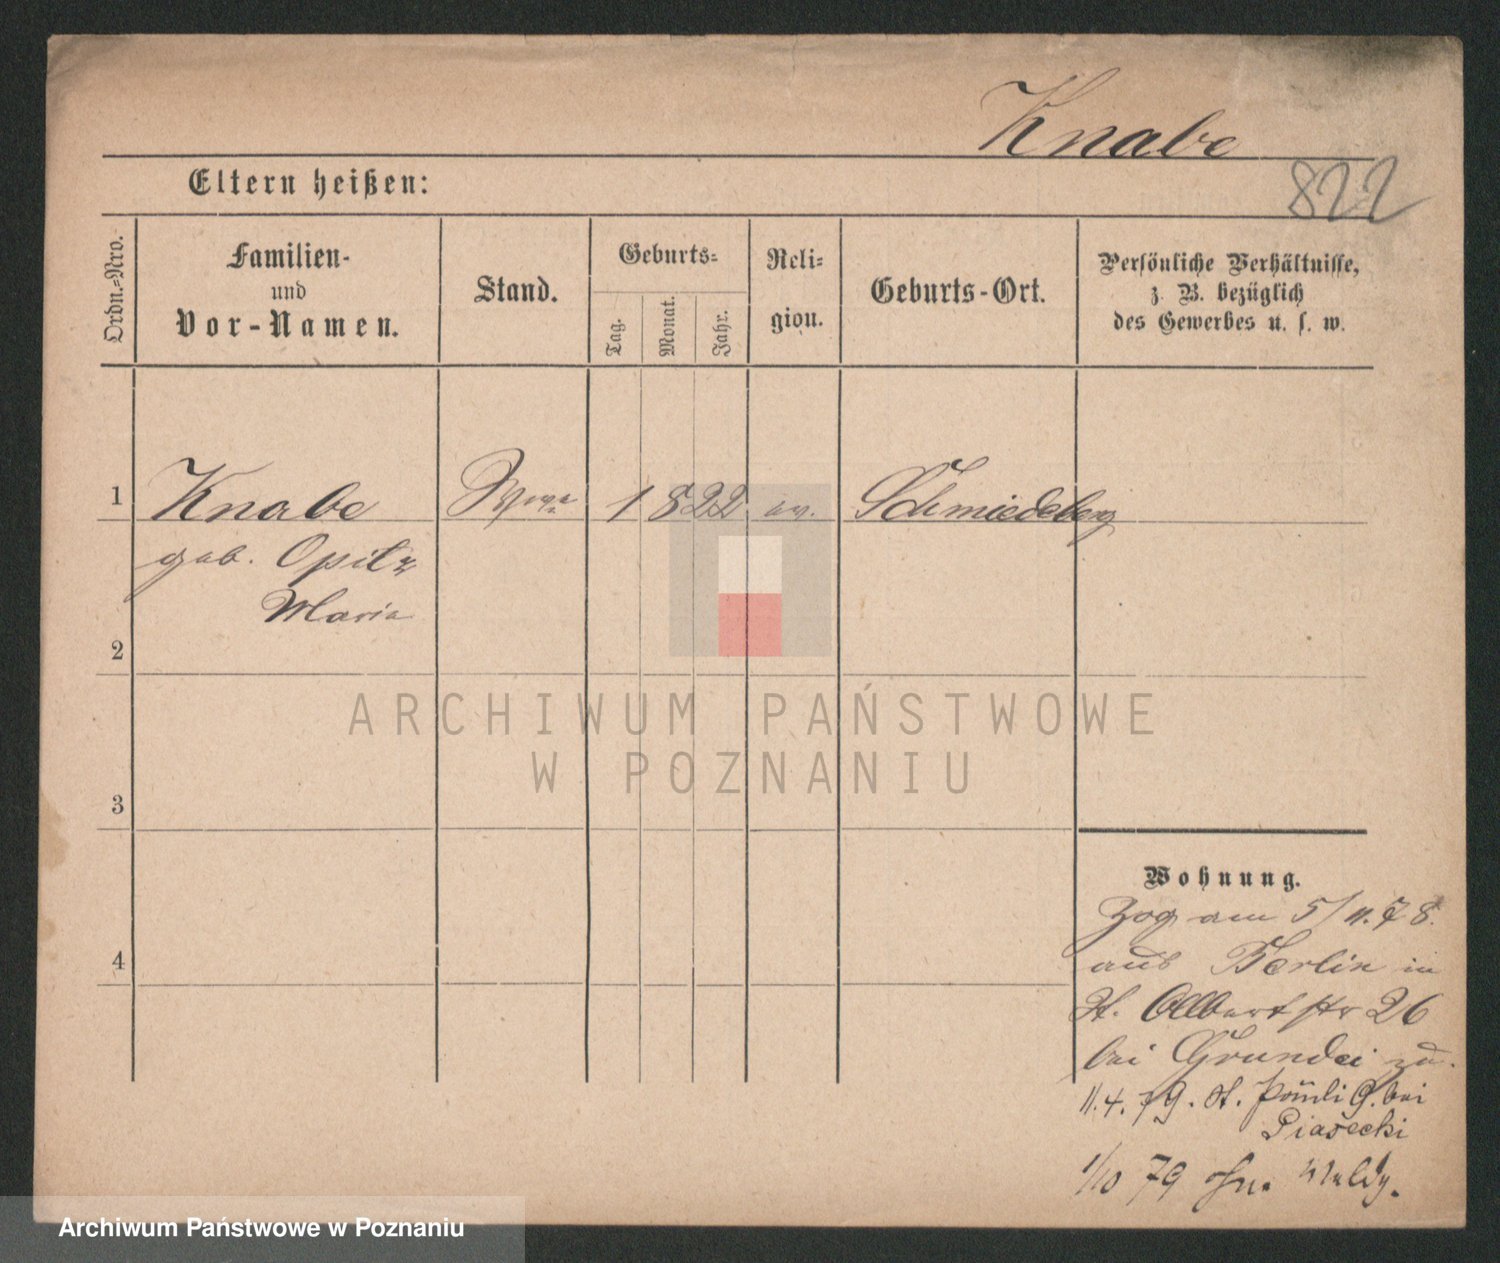 Knabe
822
Eltern heißen:
Ordn.-Nro.
Familien-
und
Vor-Namen.
Stand.
Geburts-
Tag.
Monat.
Jahr.
Reli-
gion.
Geburts-Ort.
Persönliche Verhältnisse,
z. B. bezüglich
des Gewerbes u. s. w.
1
Knabe
1822
ev.
Schmiedeberg
geb. Opitz
Maria
2
3
4
Wohnung.
Zog am 5/11.78.
aus Berlin in
St. Adalbertstr 26
bei Grundei zu.
11.4.79. St. bei
Piasecki
1/10 79
ARCHIWUM PAŃSTWOWE
W POZNANIU
Archiwum Państwowe w Poznaniu